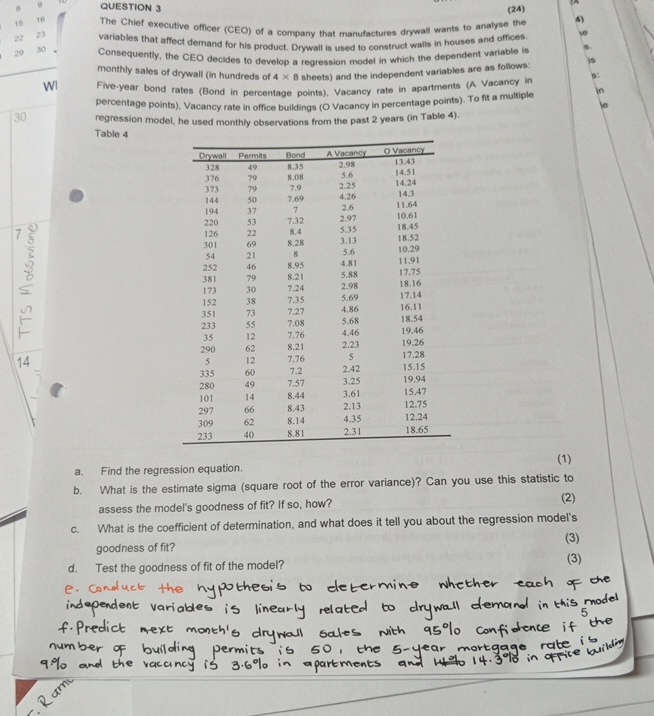 8 9
15 16
22 23
29 30
30
7
14
TTS
QUESTION 3
(24)
The Chief executive officer (CEO) of a company that manufactures drywall wants to analyse the
variables that affect demand for his product. Drywall is used to construct walls in houses and offices.
Consequently, the CEO decides to develop a regression model in which the dependent variable is
monthly sales of drywall (in hundreds of 4 × 8 sheets) and the independent variables are as follows:
Five-year bond rates (Bond in percentage points), Vacancy rate in apartments (A Vacancy in
percentage points), Vacancy rate in office buildings (O Vacancy in percentage points). To fit a multiple
regression model, he used monthly observations from the past 2 years (in Table 4).
Table 4
Drywall Permits Bond A Vacancy O Vacancy
328 49 8.35 2.98 13.43
376 79 8.08 5.6 14.51
373 79 7.9 2.25 14.24
144 50 7.69 4.26 14.3
194 37 7 2.6 11.64
220 53 7.32 2.97 10.61
126 22 8.4 5.35 18.45
301 69 8.28 3.13 18.52
54 21 8 5.6 10.29
252 46 8.95 4.81 11.91
381 79 8.21 5.88 17.75
173 30 7.24 2.98 18.16
152 38 7.35 5.69 17.14
351 73 7.27 4.86 16.11
233 55 7.08 5.68 18.54
35 12 7.76 4.46 19.46
290 62 8.21 2.23 19.26
5 12 7.76 5 17.28
335 60 7.2 2.42 15.15
280 49 7.57 3.25 19.94
101 14 8.44 3.61 15.47
297 66 8.43 2.13 12.75
309 62 8.14 4.35 12.24
233 40 8.81 2.31 18.65
a. Find the regression equation.
(1)
b. What is the estimate sigma (square root of the error variance)? Can you use this statistic to
assess the model's goodness of fit? If so, how?
(2)
c. What is the coefficient of determination, and what does it tell you about the regression model's
goodness of fit?
(3)
d. Test the goodness of fit of the model?
(3)
e. Conduct the hypothesis to determine whether each of the
independent variables is linearly related to drywall demand in this model
5
f. Predict next month's drywall sales with 95% confidence if the
number of building permits is 50, the 5-year mortgage rate is
9% and the vacancy is 3.6% in apartments and 14.3% in office building